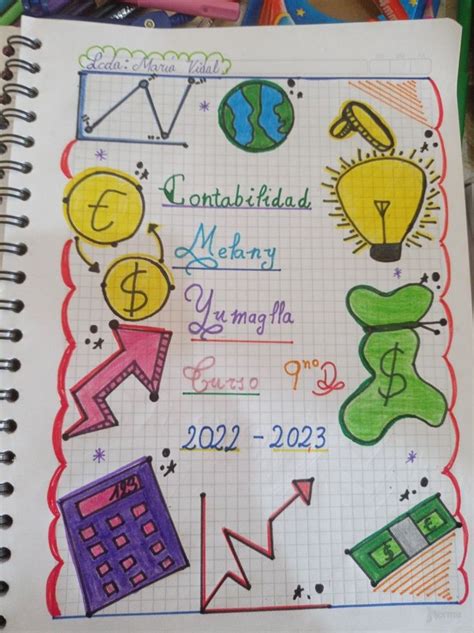 Lcda: María Vidal
€
Contabilidad
Melany
$
Yumaglla
Curso 9no D
$
2022 - 2023
123
$ €
Norma